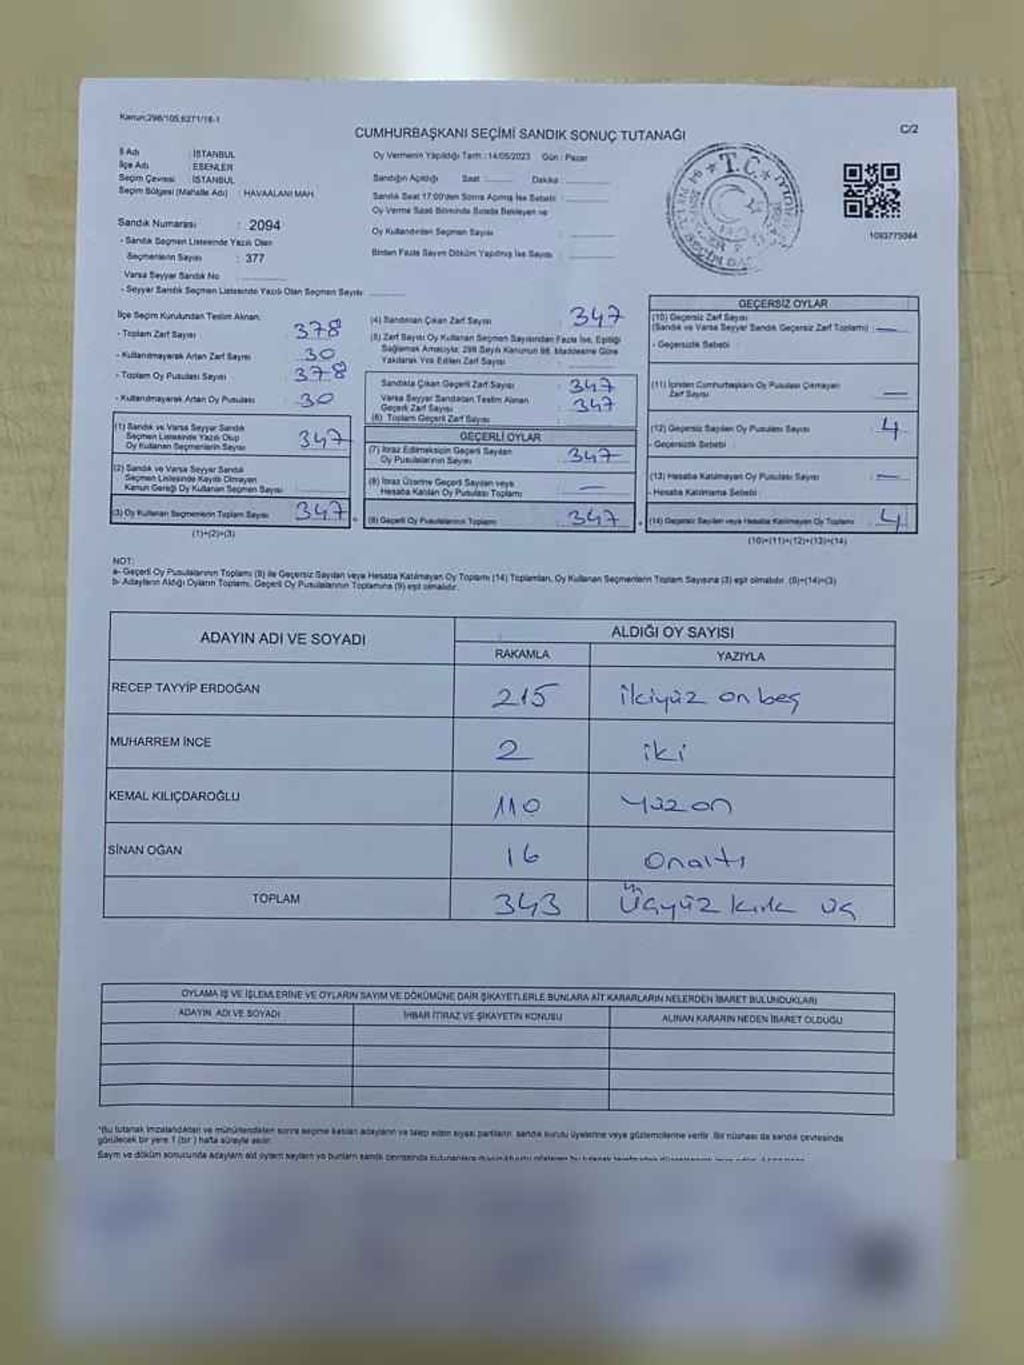 Kanun:298/105;6271/18-1
C/2
CUMHURBAŞKANI SEÇİMİ SANDIK SONUÇ TUTANAĞI
İl Adı : İSTANBUL
İlçe Adı : ESENLER
Seçim Çevresi : İSTANBUL
Seçim Bölgesi (Mahalle Adı) : HAVAALANI MAH.
Sandık Numarası : 2094
- Sandık Seçmen Listesinde Yazılı Olan
Seçmenlerin Sayısı : 377
Varsa Seyyar Sandık No
- Seyyar Sandık Seçmen Listesinde Yazılı Olan Seçmen Sayısı
Oy Vermenin Yapıldığı Tarih : 14/05/2023 Gün : Pazar
Sandığın Açıldığı Saat Dakika
Sandık Saat 17:00'den Sonra Açılmış İse Sebebi
Oy Verme Saati Bitiminde Sırada Bekleyen ve
Oy Kullandırılan Seçmen Sayısı
Birden Fazla Sayım Döküm Yapılmış İse Sayısı
T.C.
1093775084
İlçe Seçim Kurulundan Teslim Alınan;
- Toplam Zarf Sayısı 378
- Kullanılmayarak Artan Zarf Sayısı 30
- Toplam Oy Pusulası Sayısı 378
- Kullanılmayarak Artan Oy Pusulası 30
(1) Sandık ve Varsa Seyyar Sandık
Seçmen Listesinde Yazılı Olup
Oy Kullanan Seçmenlerin Sayısı 347
(2) Sandık ve Varsa Seyyar Sandık
Seçmen Listesinde Kayıtlı Olmayan
Kanun Gereği Oy Kullanan Seçmen Sayısı
(3) Oy Kullanan Seçmenlerin Toplam Sayısı 347
(1)+(2)=(3)
(4) Sandıktan Çıkan Zarf Sayısı 347
(5) Zarf Sayısı Oy Kullanan Seçmen Sayısından Fazla İse, Eşitliği
Sağlamak Amacıyla; 298 Sayılı Kanunun 98. Maddesine Göre
Yakılarak Yok Edilen Zarf Sayısı
Sandıkta Çıkan Geçerli Zarf Sayısı 347
Varsa Seyyar Sandıktan Teslim Alınan
Geçerli Zarf Sayısı 347
(6) Toplam Geçerli Zarf Sayısı
GEÇERLİ OYLAR
(7) İtiraz Edilmeksizin Geçerli Sayılan
Oy Pusulalarının Sayısı 347
(8) İtiraz Üzerine Geçerli Sayılan veya
Hesaba Katılan Oy Pusulası Toplamı —
(9) Geçerli Oy Pusulalarının Toplamı 347
GEÇERSİZ OYLAR
(10) Geçersiz Zarf Sayısı
(Sandık ve Varsa Seyyar Sandık Geçersiz Zarf Toplamı) —
- Geçersizlik Sebebi
(11) İçinden Cumhurbaşkanı Oy Pusulası Çıkmayan
Zarf Sayısı —
(12) Geçersiz Sayılan Oy Pusulası Sayısı 4
- Geçersizlik Sebebi
(13) Hesaba Katılmayan Oy Pusulası Sayısı —
- Hesaba Katılmama Sebebi
(14) Geçersiz Sayılan veya Hesaba Katılmayan Oy Toplamı 4
(10)+(11)+(12)+(13)=(14)
NOT:
a- Geçerli Oy Pusulalarının Toplamı (9) ile Geçersiz Sayılan veya Hesaba Katılmayan Oy Toplamı (14) Toplamları, Oy Kullanan Seçmenlerin Toplam Sayısına (3) eşit olmalıdır. (9)+(14)=(3)
b- Adayların Aldığı Oyların Toplamı, Geçerli Oy Pusulalarının Toplamına (9) eşit olmalıdır.
ADAYIN ADI VE SOYADI
ALDIĞI OY SAYISI
RAKAMLA YAZIYLA
RECEP TAYYİP ERDOĞAN 215 ikiyüz onbeş
MUHARREM İNCE 2 iki
KEMAL KILIÇDAROĞLU 110 Yüzon
SİNAN OĞAN 16 Onaltı
TOPLAM 343 Üçyüz kırk üç
OYLAMA İŞ VE İŞLEMLERİNE VE OYLARIN SAYIM VE DÖKÜMÜNE DAİR ŞİKAYETLERLE BUNLARA AİT KARARLARIN NELERDEN İBARET BULUNDUKLARI
ADAYIN ADI VE SOYADI İHBAR İTİRAZ VE ŞİKAYETİN KONUSU ALINAN KARARIN NEDEN İBARET OLDUĞU
*Bu tutanak imzalandıktan ve mühürlendikten sonra seçime katılan adayların ve talep eden siyasi partilerin sandık kurulu üyelerine veya gözlemcilerine verilir. Bir nüshası da sandık çevresinde
görülecek bir yere 1 (bir) hafta süreyle asılır.
Sayım ve döküm sonucunda adayların